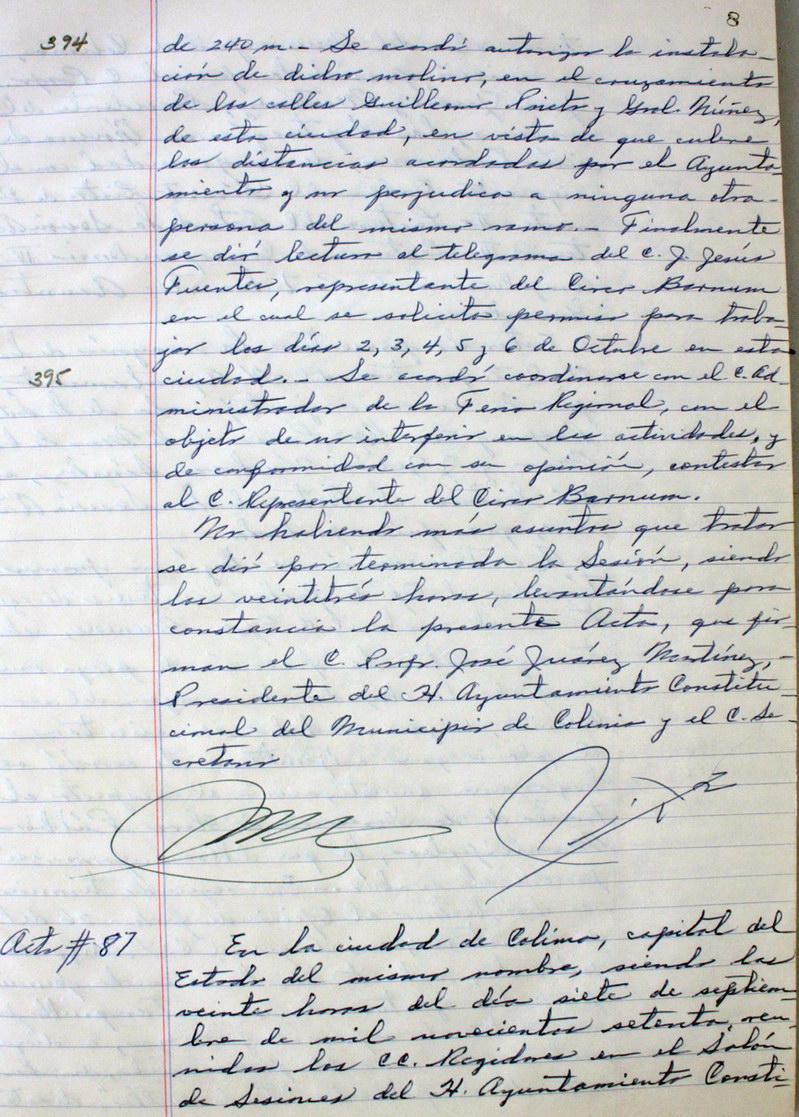 8
394
de 240 m.- Se acordó autorizar la instala-
ción de dicho molino, en el cruzamiento
de las calles Guillermo Prieto y Gral. Núñez,
de esta ciudad, en vista de que cubre
las distancias acordadas por el Ayunta-
miento y no perjudica a ninguna otra-
persona del mismo ramo.- Finalmente
se dió lectura al telegrama del C. J. Jesús
Fuentes, representante del Circo Barnum
en el cual se solicita permiso para traba-
jar los días 2, 3, 4, 5 y 6 de Octubre en esta
395
ciudad.- Se acordó coordinarse con el C. Ad-
ministrador de la Feria Regional, con el
objeto de no interferir en las actividades, y
de conformidad con su opinión, contestar
al C. Representante del Circo Barnum.
No habiendo más asuntos que tratar
se dió por terminada la Sesión, siendo
las veintitrés horas, levantándose para
constancia la presente Acta, que fir-
man el C. Profr. José Juárez Martínez,-
Presidente del H. Ayuntamiento Constitu-
cional del Municipio de Colima y el C. Se-
cretario
Acta # 87
En la ciudad de Colima, capital del
Estado del mismo nombre, siendo las
veinte horas del día siete de septiem-
bre de mil novecientos setenta, reu-
nidos los CC. Regidores en el Salón
de Sesiones del H. Ayuntamiento Consti-